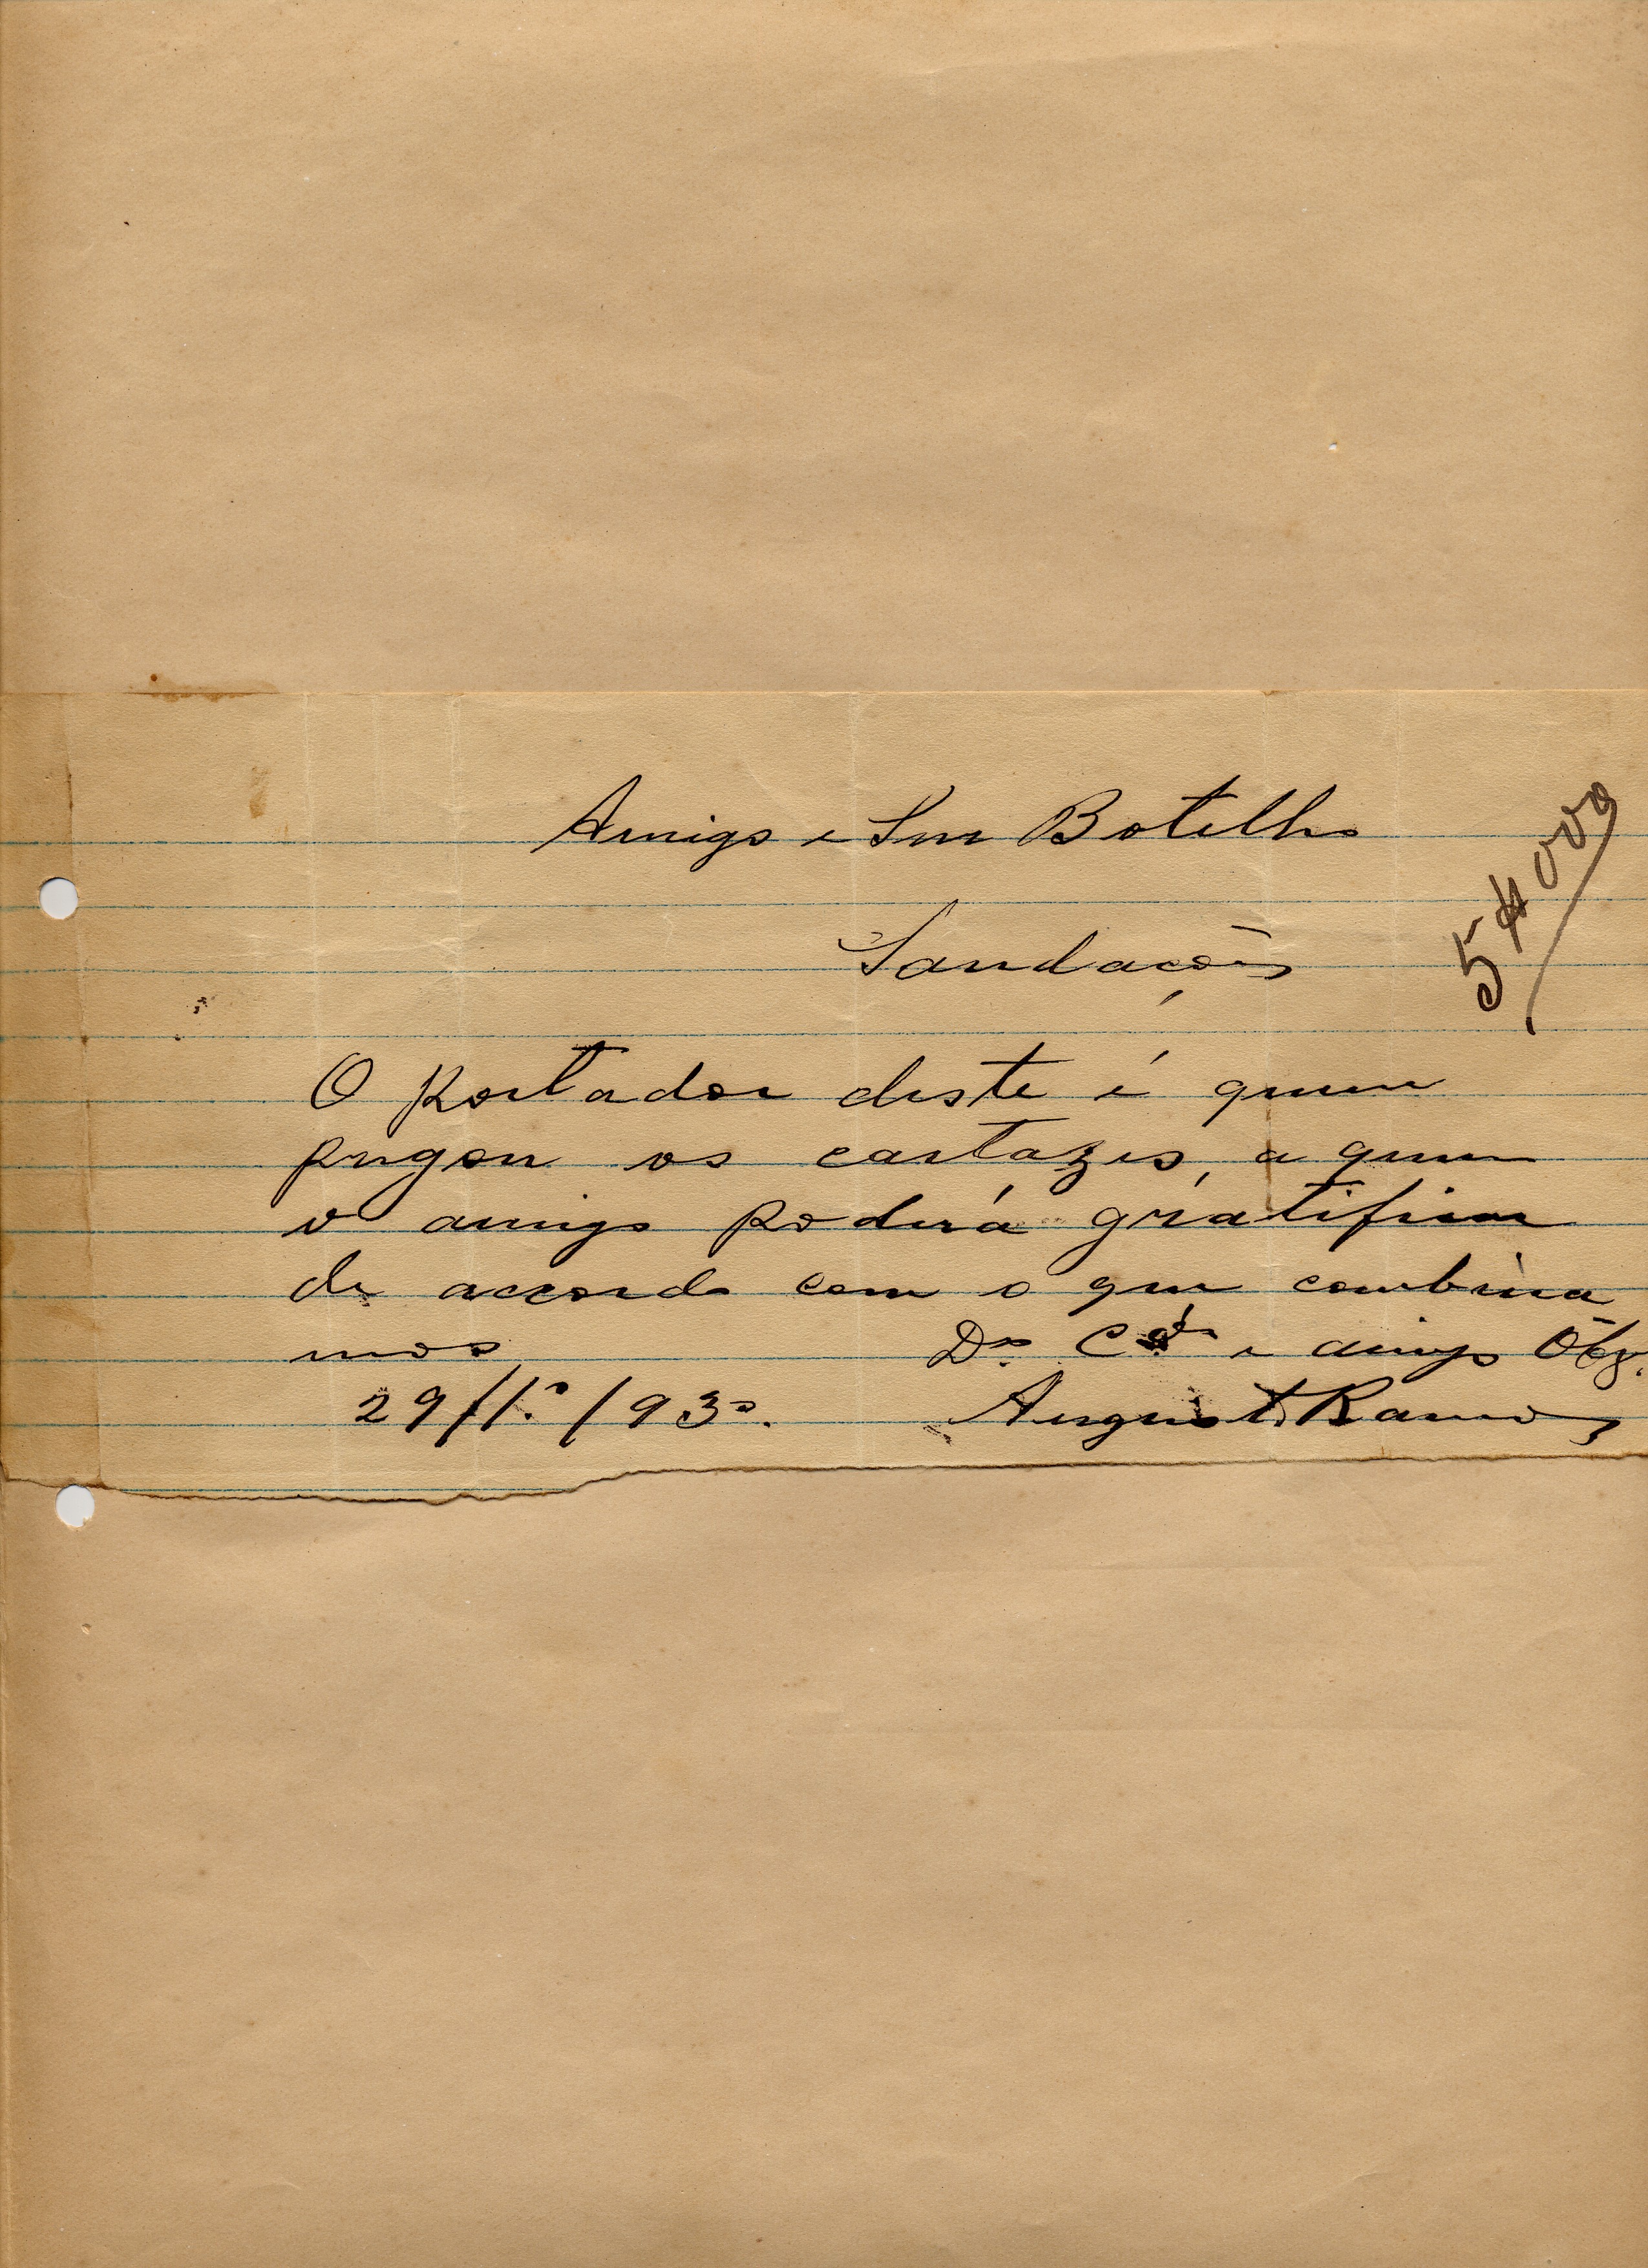 Amigo e Snr Botelho
5$000
Saudações
O portador deste é quem
pregou os cartazes, a quem
o amigo poderá gratificar
de accordo com o que combina
mos
Do. Cdo e amigo Obg.
29/1º/930.
Augusto Ramos